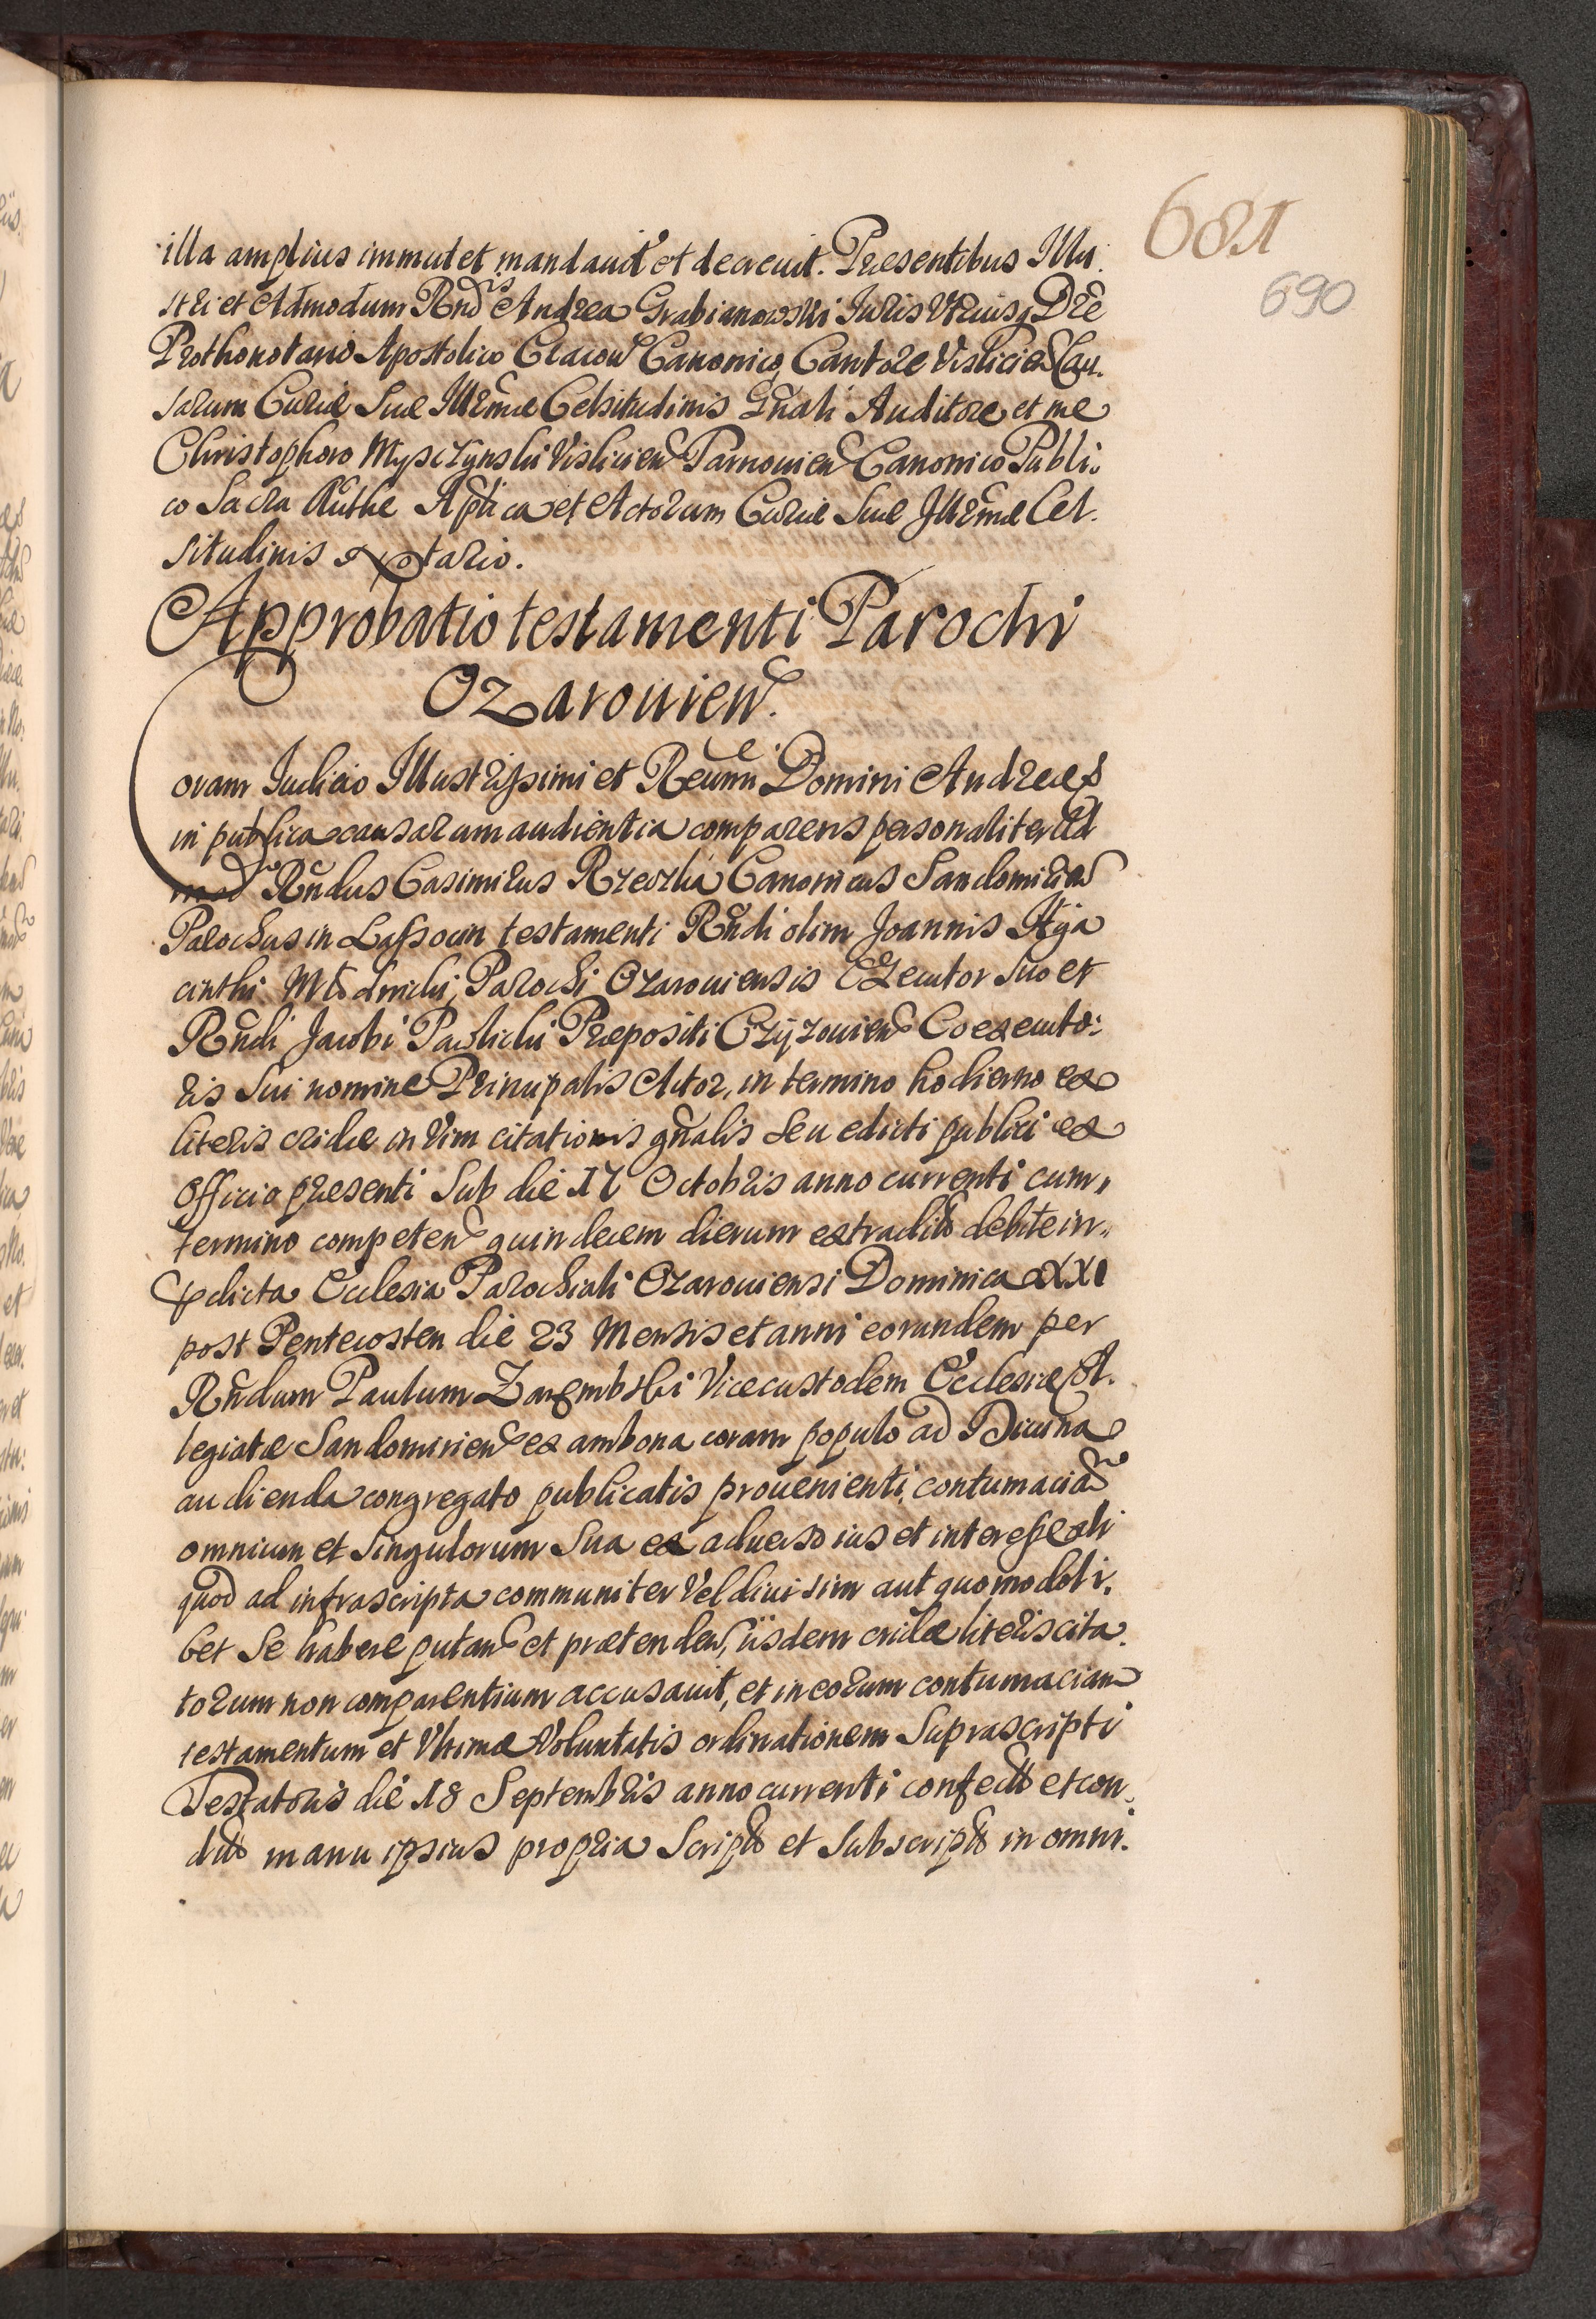 681
690
illa amplius immutet mandauit et decreuit. Præsentibus Illu.
stri et Admodum Rndis Andrea Grabianowski Iuris Vtriusq Dre
Prothonotario Apostolico Cracou Canonico, Cantore Vislicien Cau.
sarum Curiæ Suæ Illrmæ Celsitudinis Gnali Auditore et me
Christophoro Myszczynski Vislicien Tarnouien Canonico Publi.
co Sacra Authe Aptica et Actorum Curiæ Suæ Illrmæ Cel.
situdinis Notario.
Approbatio testamenti Parochi
Ozarouien.
Coram Iudicio Illustrissimi et Reumi Domini Andreæ &
in publica causarum audientia comparens personaliter Ad
mod Rndus Casimirus Canonicus Sandomirien
Parochus in Lassocin testamenti Rndi olim Joannis Hya
cinthi Parochi Ozarouiensis Executor suo et
Rndi Jacobi Pawlicki Præpositi Czyzouien Coexecuto:
ris sui nomine Principalis Actor, in termino hodierno ex
literis cridæ in vim citationis gnalis seu edicti publici ex
Officio præsenti sub die 17 Octobris anno currenti cum
termino competen quindecem dierum extradit debite in
pdicta Ecclesia Parochiali Ozarouiensi Dominica XXI
post Pentecosten die 23 Mensis et anni eorundem per
Rndum Paulum Zarembski Vicecustodem Ecclesiæ Col.
legiatæ Sandomirien ex ambona coram populo ad Diuina
audienda congregato publicatis prouenienti, contumaciam
omnium et singulorum sua ex aduerso ius et interesse ali
quod ad infrascripta communiter vel diuisim aut quomodoli.
bet se habere putan et prætenden, iisdem cridæ literis cita.
torum non comparentium accusauit, et in eorum contumaciam
testamentum et Vltimæ Voluntatis ordinationem suprascripti
Testatoris die 18 Septembris anno currenti confect et con.
dit manu ipsius propria script et subscript in omni.